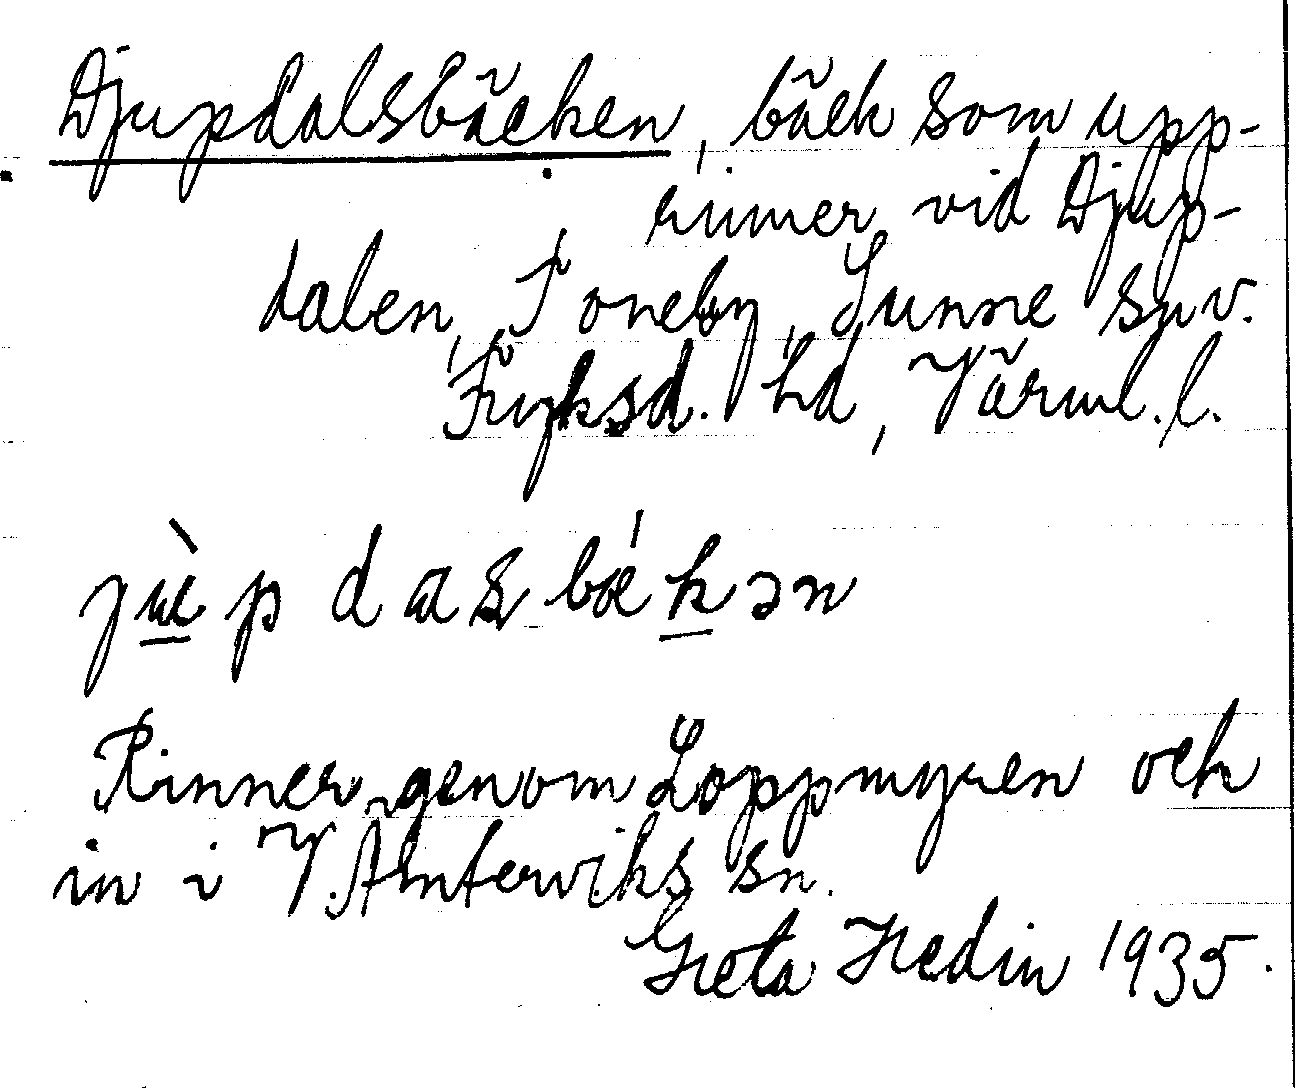 Djupdalsbäcken, bäck som upp-
rinner vid Djup-
dalen, Toneby, Sunne sn v.
Fryksd. hd, Värml. l.
jùpdasbækən
Rinner genom Loppmyren och
in i V. Ämterviks sn.
Greta Hedin 1935.